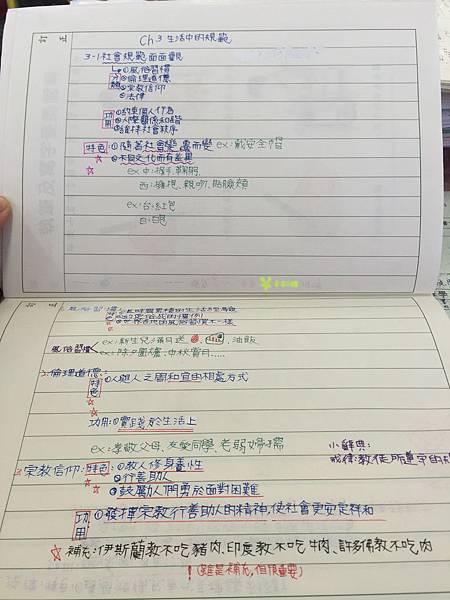 訂正
Ch3 生活中的規範
3-1 社會規範面面觀
分類 ①風俗習慣
②倫理道德
③宗教信仰
④法律
功用 ①約束個人行為
②人際關係和諧
③維持社會秩序
特色 ①隨著社會變遷而變 ex:戴安全帽
☆ ②不同文化而有差異
ex 中:握手、鞠躬
西:擁抱、親吻、貼臉頰
ex:台:紅包
日:白包
訂正
風俗習慣
③世界各地的風俗習慣不一樣
風俗習慣 ex:新生兒滿月送 油飯
ex:除夕圍爐、中秋賞月......
2.倫理道德:
特色 ①人與人之間和宜的相處方式
功用:①實踐於生活上
ex:孝敬父母、友愛同學、老弱婦孺
小辭典:
3.宗教信仰:特色:①教人修身養性
戒律:教徒所遵守的
②行善助人
③鼓勵人們勇於面對困難
功用 ①發揮宗教行善助人的精神,使社會更安定祥和
☆補充:伊斯蘭教不吃豬肉、印度教不吃牛肉、許多佛教不吃肉
!(雖是補充,但很重要)